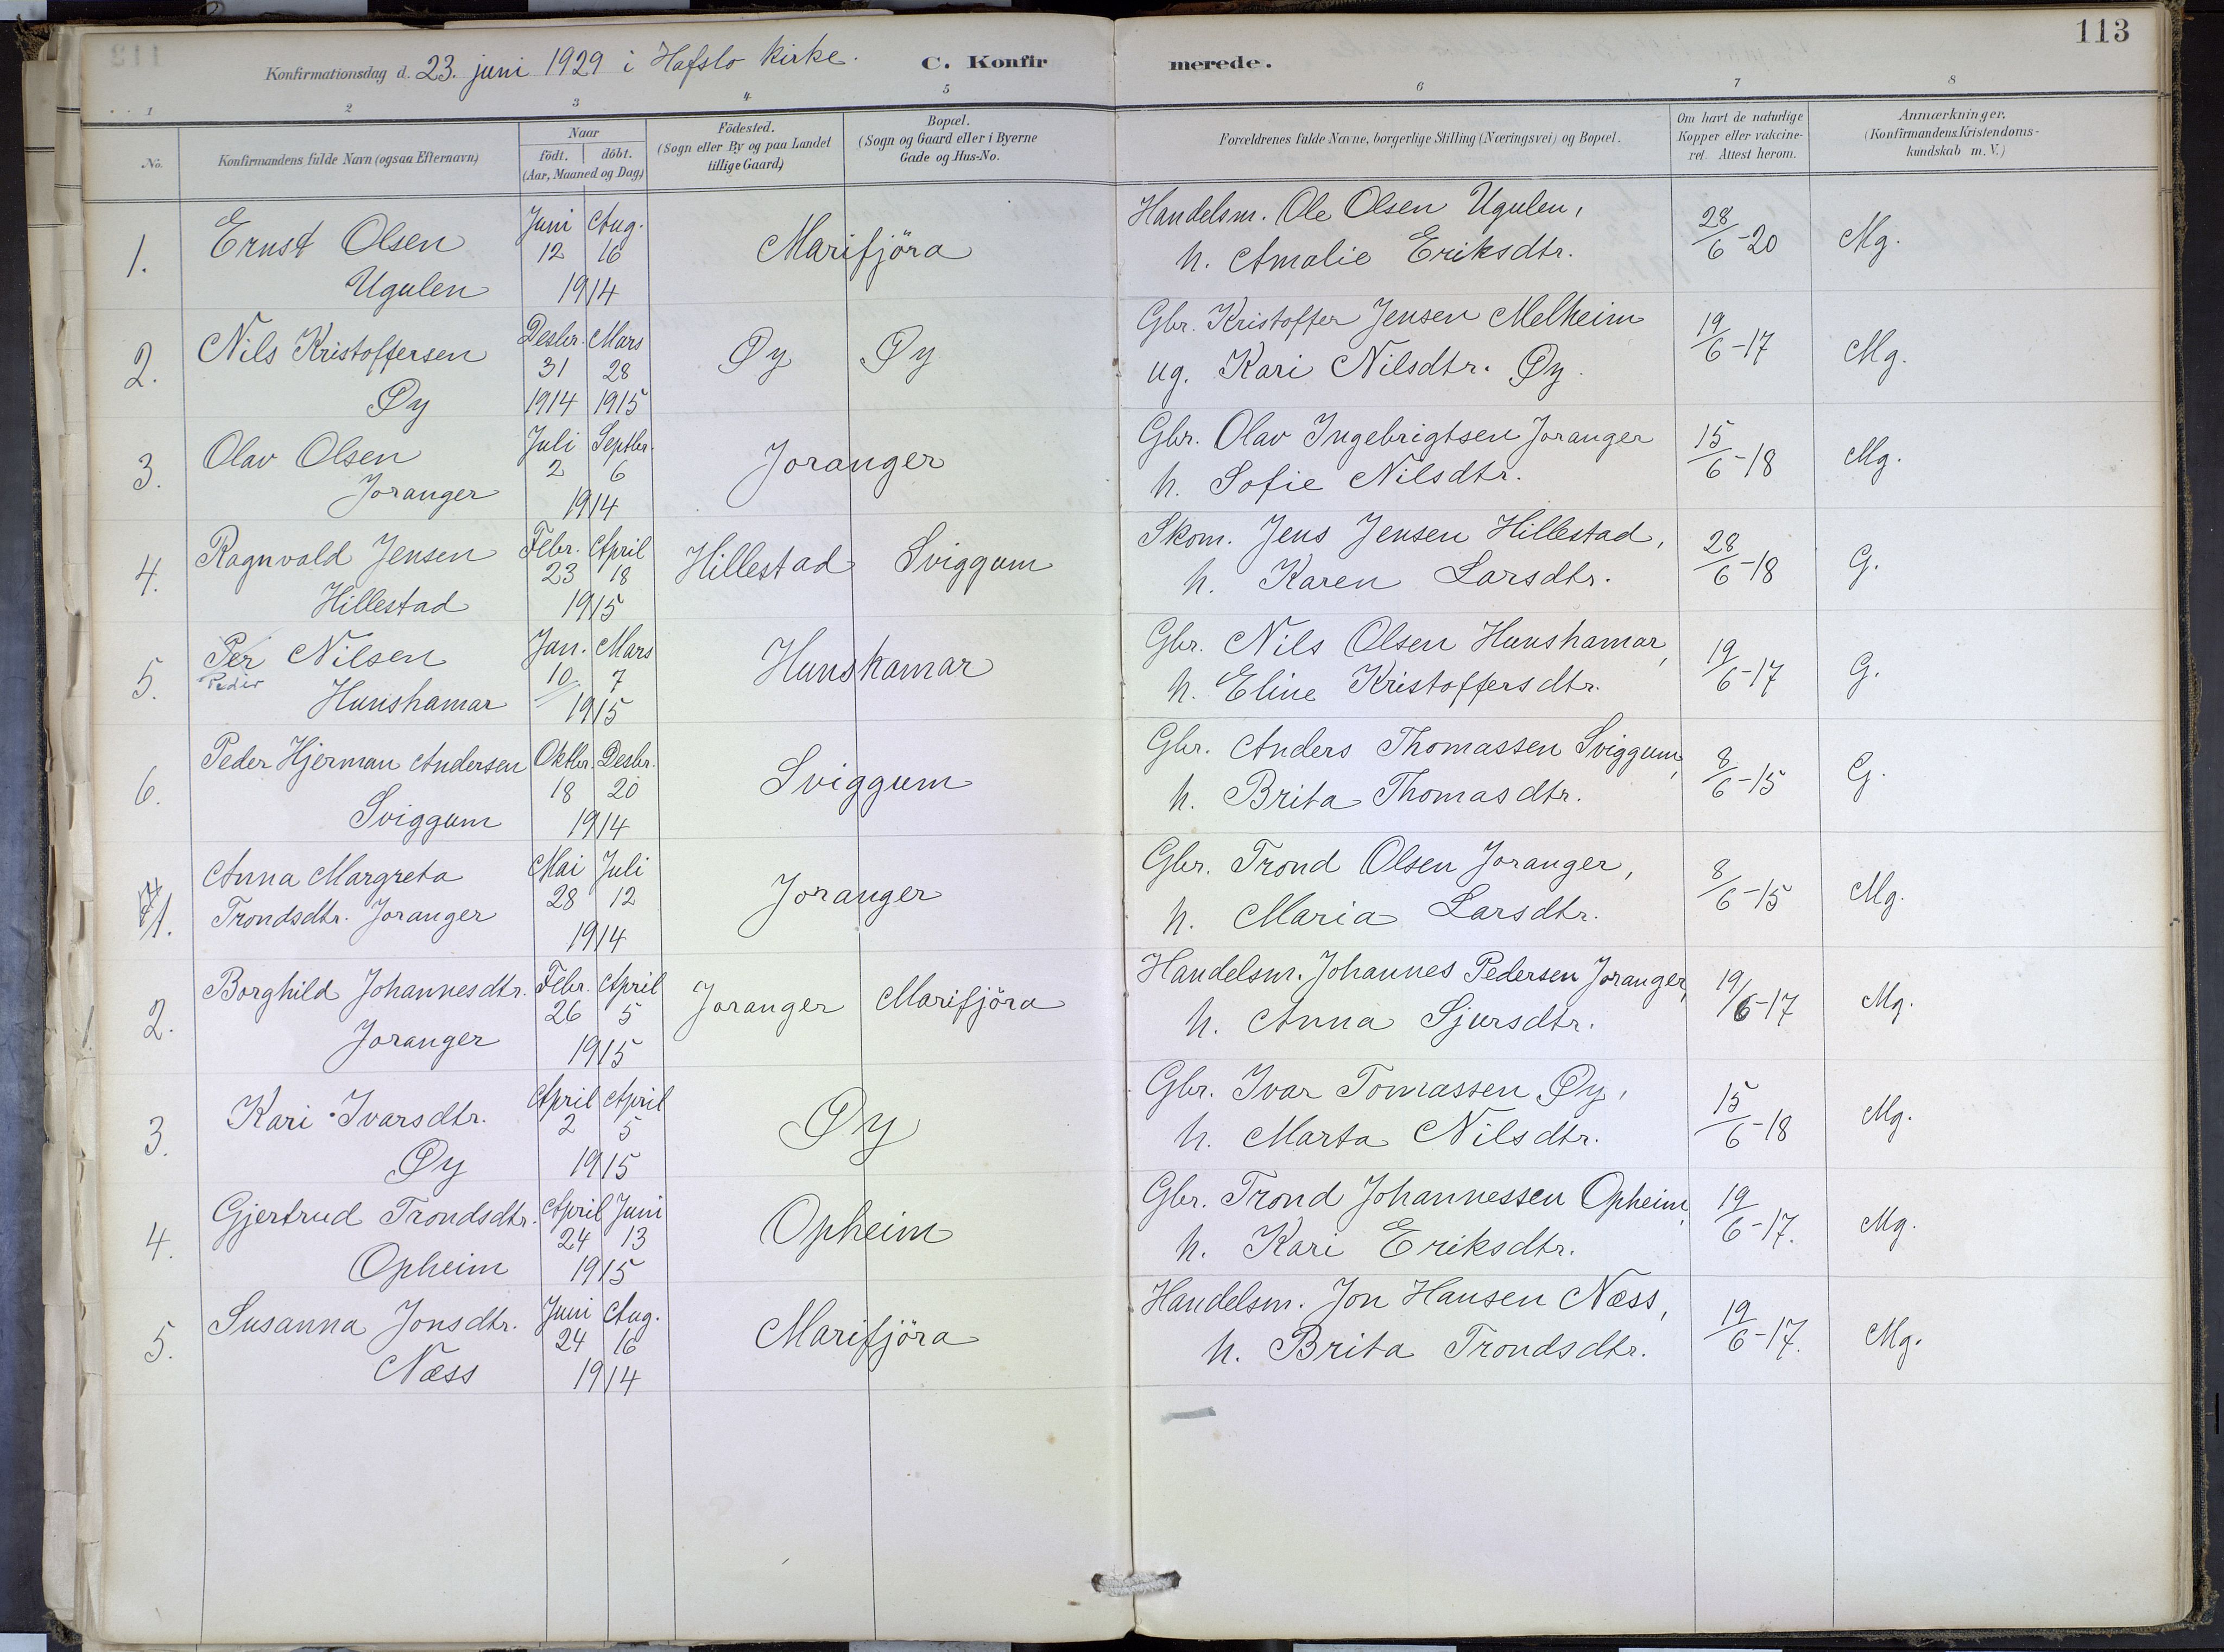 113
Konfirmationsdag d. 23. juni 1929 i Hafslo kirke. C. Konfirmerede.
1 2 3 4 5 6 7 8
No.
Konfirmandens fulde Navn (ogsaa Efternavn)
Naar
födt. döbt.
(Aar, Maaned og Dag)
Födested.
(Sogn eller By og paa Landet
tillige Gaard)
Bopæl.
(Sogn og Gaard eller i Byerne
Gade og Hus-No.
Forældrenes fulde Navne, borgerlige Stilling (Næringsvei) og Bopæl.
Om havt de naturlige
Kopper eller vakcine-
ret. Attest herom.
Anmærkninger,
(Konfirmandens Kristendoms-
kundskab m. V.)
1. Ernst Olsen Juni Aug. Marifjöra Handelsm. Ole Olsen Ugulen, 28/6-20 Mg.
Ugulen 12 16 1914 h. Amalie Eriksdtr.
2. Nils Kristoffersen Desbr. Mars Øy Øy Gbr. Kristoffer Jensen Melheim 19/6-17 Mg.
Øy 31 28 1914 1915 ug. Kari Nilsdtr. Øy.
3. Olav Olsen Juli Septbr. Joranger Gbr. Olav Ingebrigtsen Joranger 15/6-18 Mg.
Joranger 2 6 1914 h. Sofie Nilsdtr.
4. Ragnvald Jensen Febr. April Hillestad Sviggum Skom. Jens Jensen Hillestad, 28/6-18 G.
Hillestad 23 18 1915 h. Karen Larsdtr.
5. Per Nilsen Jan. Mars Hunshamar Gbr. Nils Olsen Hunshamar, 19/6-17 G.
Peder
Hunshamar 10 7 1915 h. Eline Kristoffersdtr.
6. Peder Hjerman Andersen Oktbr. Desbr. Sviggum Gbr. Anders Thomassen Sviggum, 8/6-15 G.
Sviggum 18 20 1914 h. Brita Thomasdtr.
1. Anna Margreta Mai Juli Joranger Gbr. Trond Olsen Joranger, 8/6-15 Mg.
Trondsdtr. Joranger 28 12 1914 h. Maria Larsdtr.
2. Borghild Johannesdtr. Febr. April Joranger Marifjöra Handelsm. Johannes Pedersen Joranger, 19/6-17 Mg.
Joranger 26 5 1915 h. Anna Sjursdtr.
3. Kari Ivarsdtr. April April Øy Gbr. Ivar Tomassen Øy, 15/6-18 Mg.
Øy 2 5 1915 h. Marta Nilsdtr.
4. Gjertrud Trondsdtr. April Juni Opheim Gbr. Trond Johannessen Opheim, 19/6-17. Mg.
Opheim 24 13 1915 h. Kari Eriksdtr.
5. Susanna Jonsdtr. Juni Aug. Marifjöra Handelsm. Jon Hansen Næss, 19/6-17. Mg.
Næss 24 16 1914 h. Brita Trondsdtr.